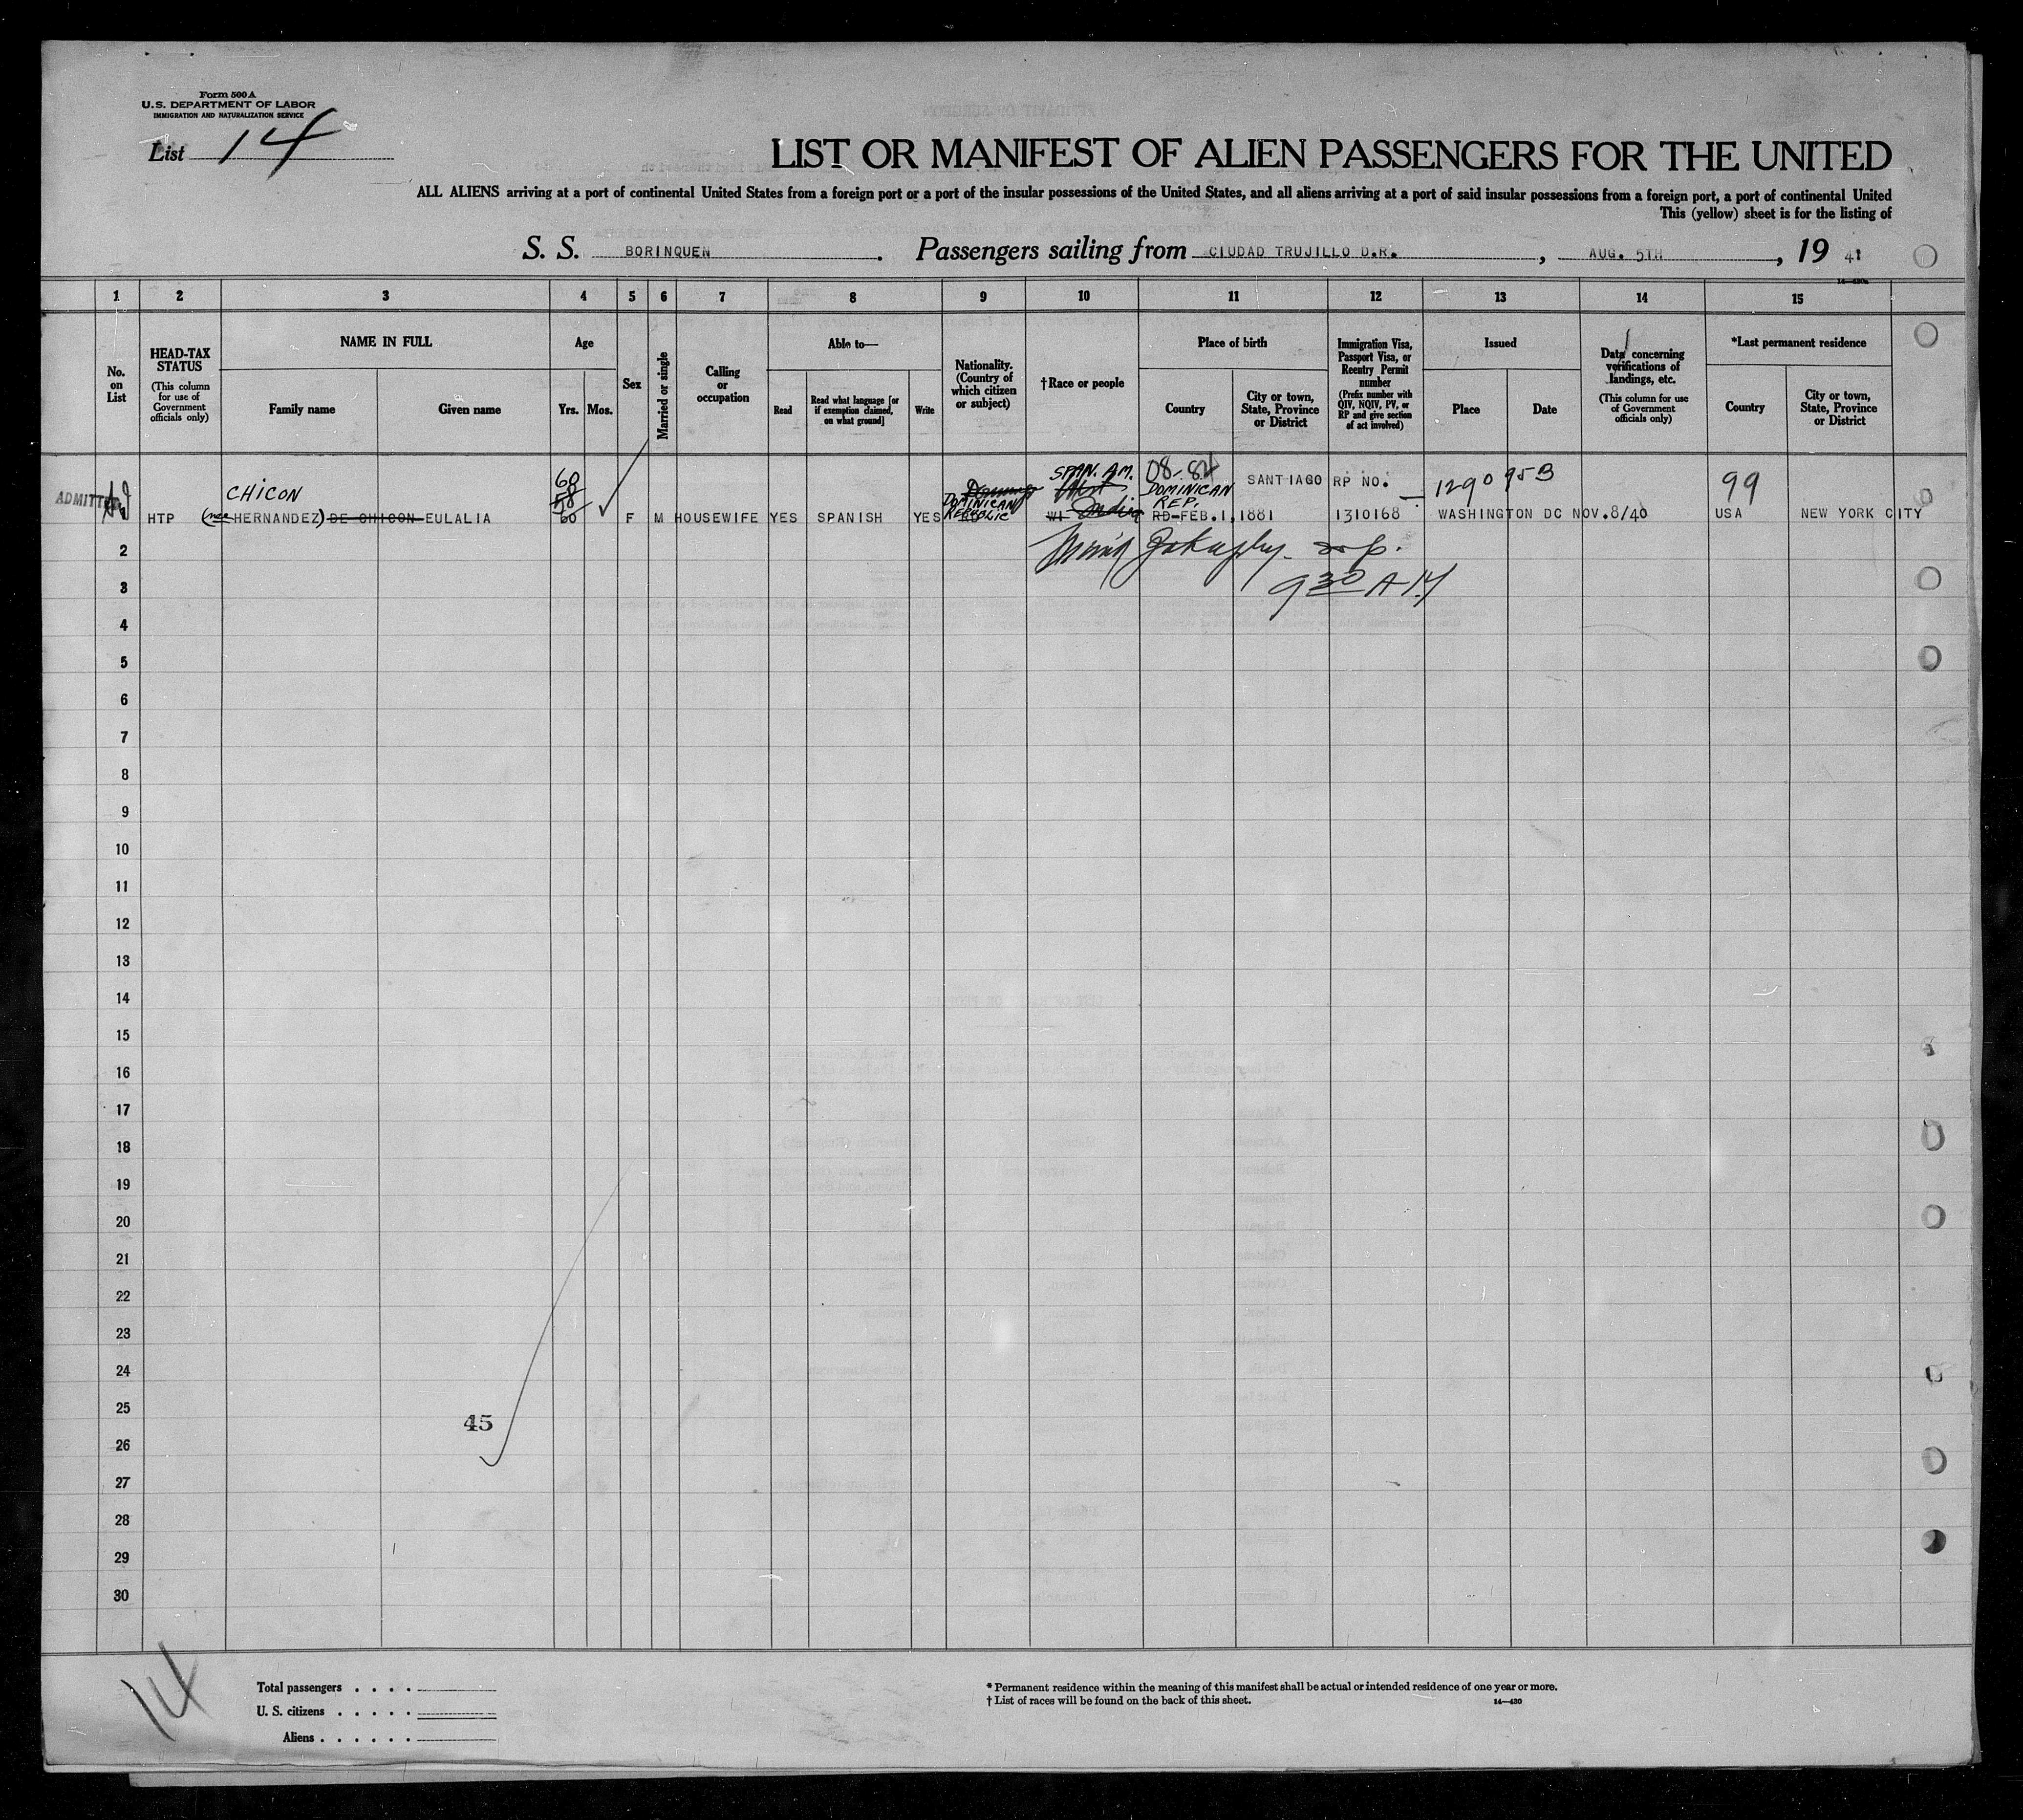 Form 500 A
U.S. DEPARTMENT OF LABOR
IMMIGRATION AND NATURALIZATION SERVICE
List 14
LIST OR MANIFEST OF ALIEN PASSENGERS FOR THE UNITED
ALL ALIENS arriving at a port of continental United States from a foreign port or a port of the insular possessions of the United States, and all aliens arriving at a port of said insular possessions from a foreign port, a port of continental United
This (yellow) sheet is for the listing of
S. S. BORINQUEN. Passengers sailing from CIUDAD TRUJILLO D.R., AUG. 5TH, 19 41
1 2 3 4 5 6 7 8 9 10 11 12 13 14 15
No. on List
HEAD-TAX STATUS (This column for use of Government officials only)
NAME IN FULL
Family name
Given name
Age
Yrs. Mos.
Sex
Married or single
Calling or occupation
Able to—
Read
Read what language [or if exemption claimed, on what ground]
Write
Nationality. (Country of which citizen or subject)
† Race or people
Place of birth
Country
City or town, State, Province or District
Immigration Visa, Passport Visa, or Reentry Permit number (Prefix number with QIV, NQIV, PV, or RP and give section of act involved)
Issued
Place
Date
Data concerning verifications of landings, etc. (This column for use of Government officials only)
*Last permanent residence
Country
City or town, State, Province or District
CHICON 60 SPAN. AM. 08-82 SANTIAGO RP NO. 129095B 99
ADMITTED 58 DOMINICAN REPUBLIC West DOMINICAN REP.
HTP (nee HERNANDEZ) DE CHICON EULALIA 60 F M HOUSEWIFE YES SPANISH YES RD WI Indian RD FEB.1,1881 1310168 WASHINGTON DC NOV.8/40 USA NEW YORK CITY
2
9 30 A M
3
4
5
6
7
8
9
10
11
12
13
14
15
16
17
18
19
20
21
22
23
24
25
45
26
27
28
29
30
14
Total passengers . . . .
U. S. citizens . . . . .
Aliens . . . . . .
* Permanent residence within the meaning of this manifest shall be actual or intended residence of one year or more.
† List of races will be found on the back of this sheet. 14—430